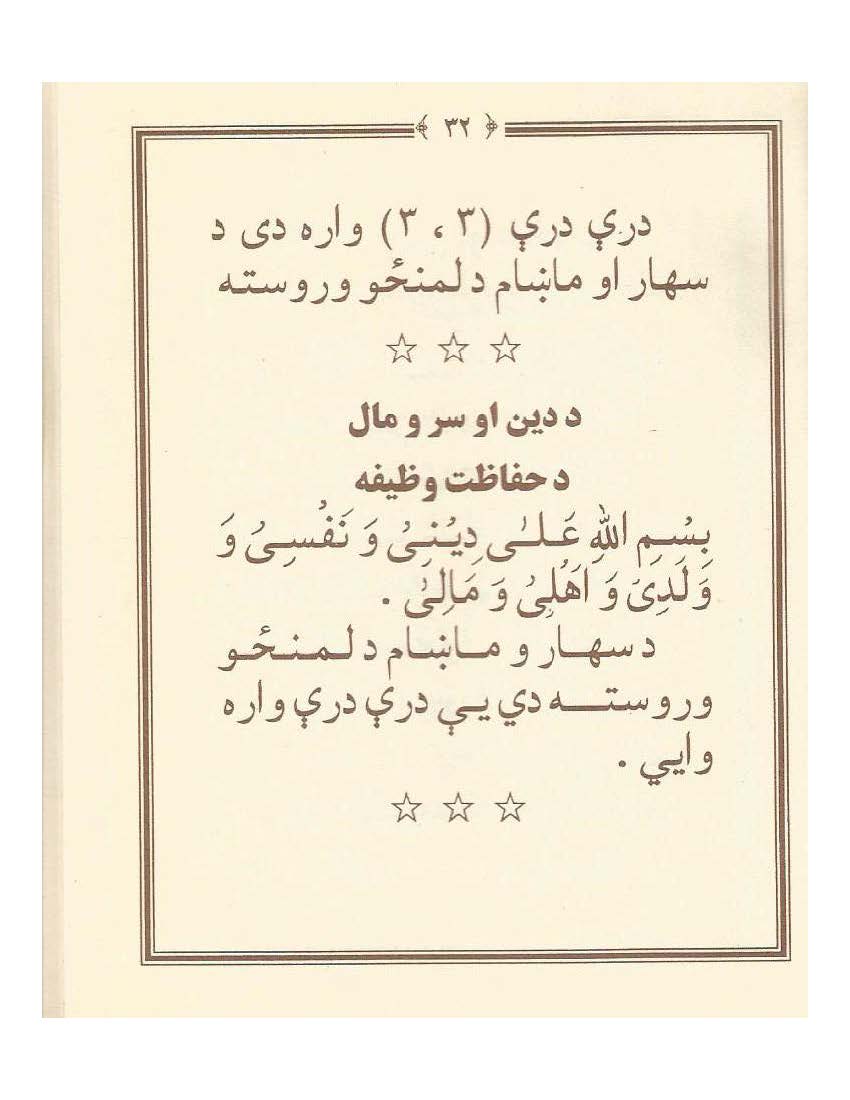 ﴿ ۳۲ ﴾
درې درې (۳ ، ۳) واره دی د
سهار او ماښام د لمنځو وروسته
☆ ☆ ☆
د دین او سر و مال
د حفاظت وظیفه
بِسْمِ اللهِ عَلٰى دِيْنِىْ وَ نَفْسِىْ وَ
وَلَدِىْ وَ اَهْلِىْ وَ مَالِىْ .
د سهار و ماښام د لمنځو
وروسته دي یې درې درې واره
وایي .
☆ ☆ ☆